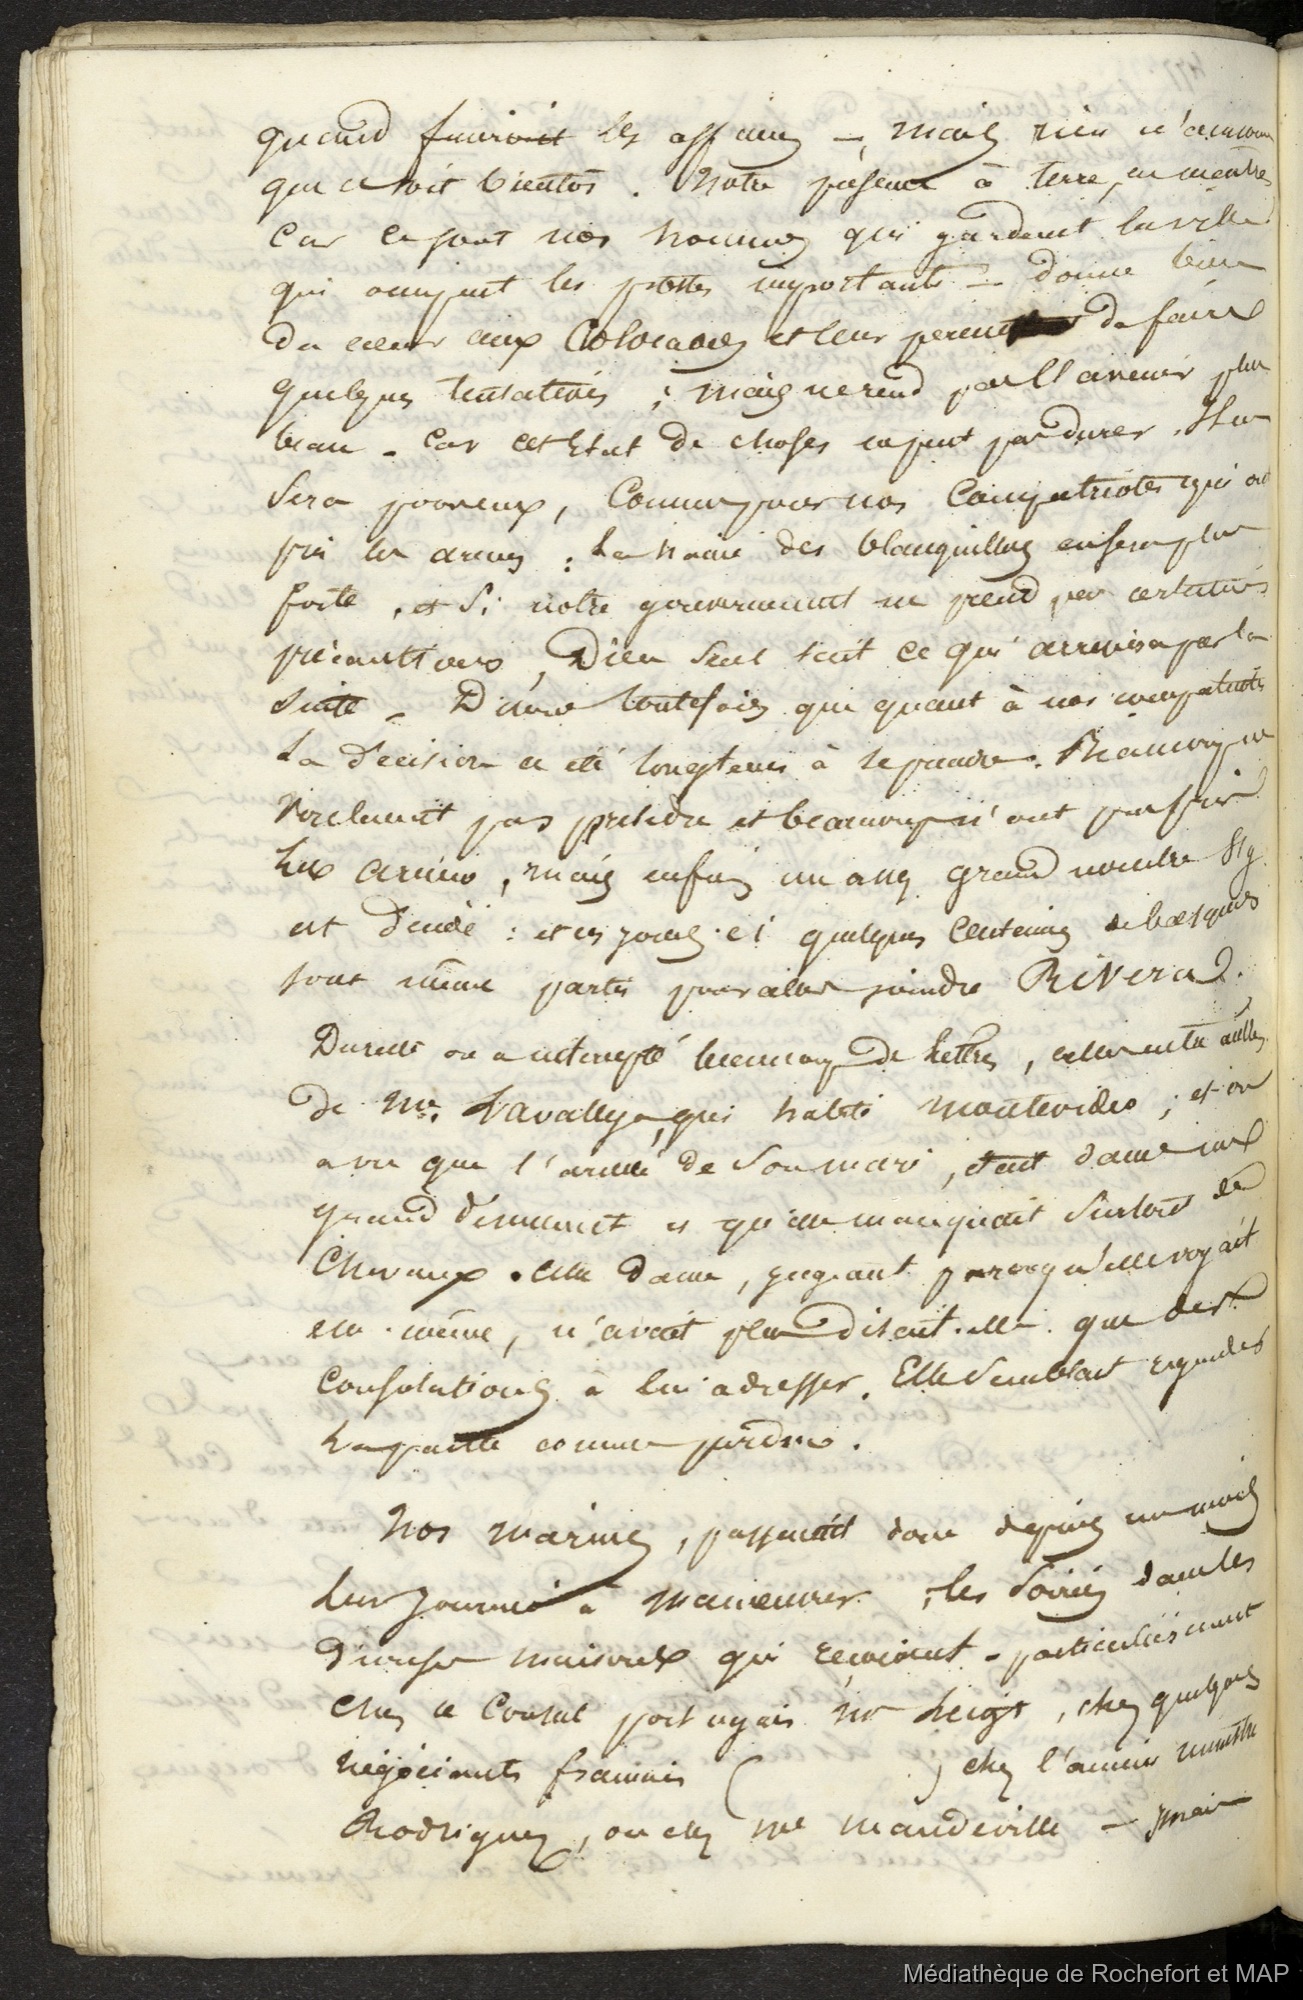 quand finiront les affaires — mais rien n'annonce
que ce soit bientôt. Notre présence à terre, en montre
car ce sont nos hommes qui gardent la ville
qui occupent les postes importants — donne bien
du cœur aux Colorados et leur permet de faire
quelques tentatives ; mais ne rend pas l'avenir plus
beau — Car cet Etat de choses ne peut pas durer. Il en
sera pour eux, comme pour nos compatriotes qui ont
pris les armes : la haine des blanquillos en sera plus
forte, et si notre gouvernement ne prend pas certaines
précautions, Dieu seul sait ce qui arrivera par la
suite — Disons toutefois que quant à nos compatriotes
La décision a été longtems à se prendre. Beaucoup ne
voulaient pas prendre et beaucoup n'ont pas pris
les armes, mais enfin un assez grand nombre s'y
est décidé : et ces jours-ci quelques centaines de basques
sont même partis pour aller joindre Rivera.
Du reste on a intercepté beaucoup de lettres, celles entre autres
de Me. Lavalleja, qui habite Montevideo ; et on
a vu que l'armée de son mari, était dans un
grand dénuement et qu'elle manquait surtout de
Chevaux. Cette dame, jugeant par ce qu'elle voyait
elle-même, n'avait plus disait-elle que des
consolations à lui adresser. Elle semblait regarder
la partie comme perdue.
Nos marins, passaient donc depuis un mois
leur journée à manœuvrer ; les soirées dans les
diverses maisons qui reçoivent — particulièrement
chez le Consul portugais Mr Leigt, chez quelques
négociants français ( ) chez l'ancien ministre
Rodriguez, ou chez Mr Mandeville — mais